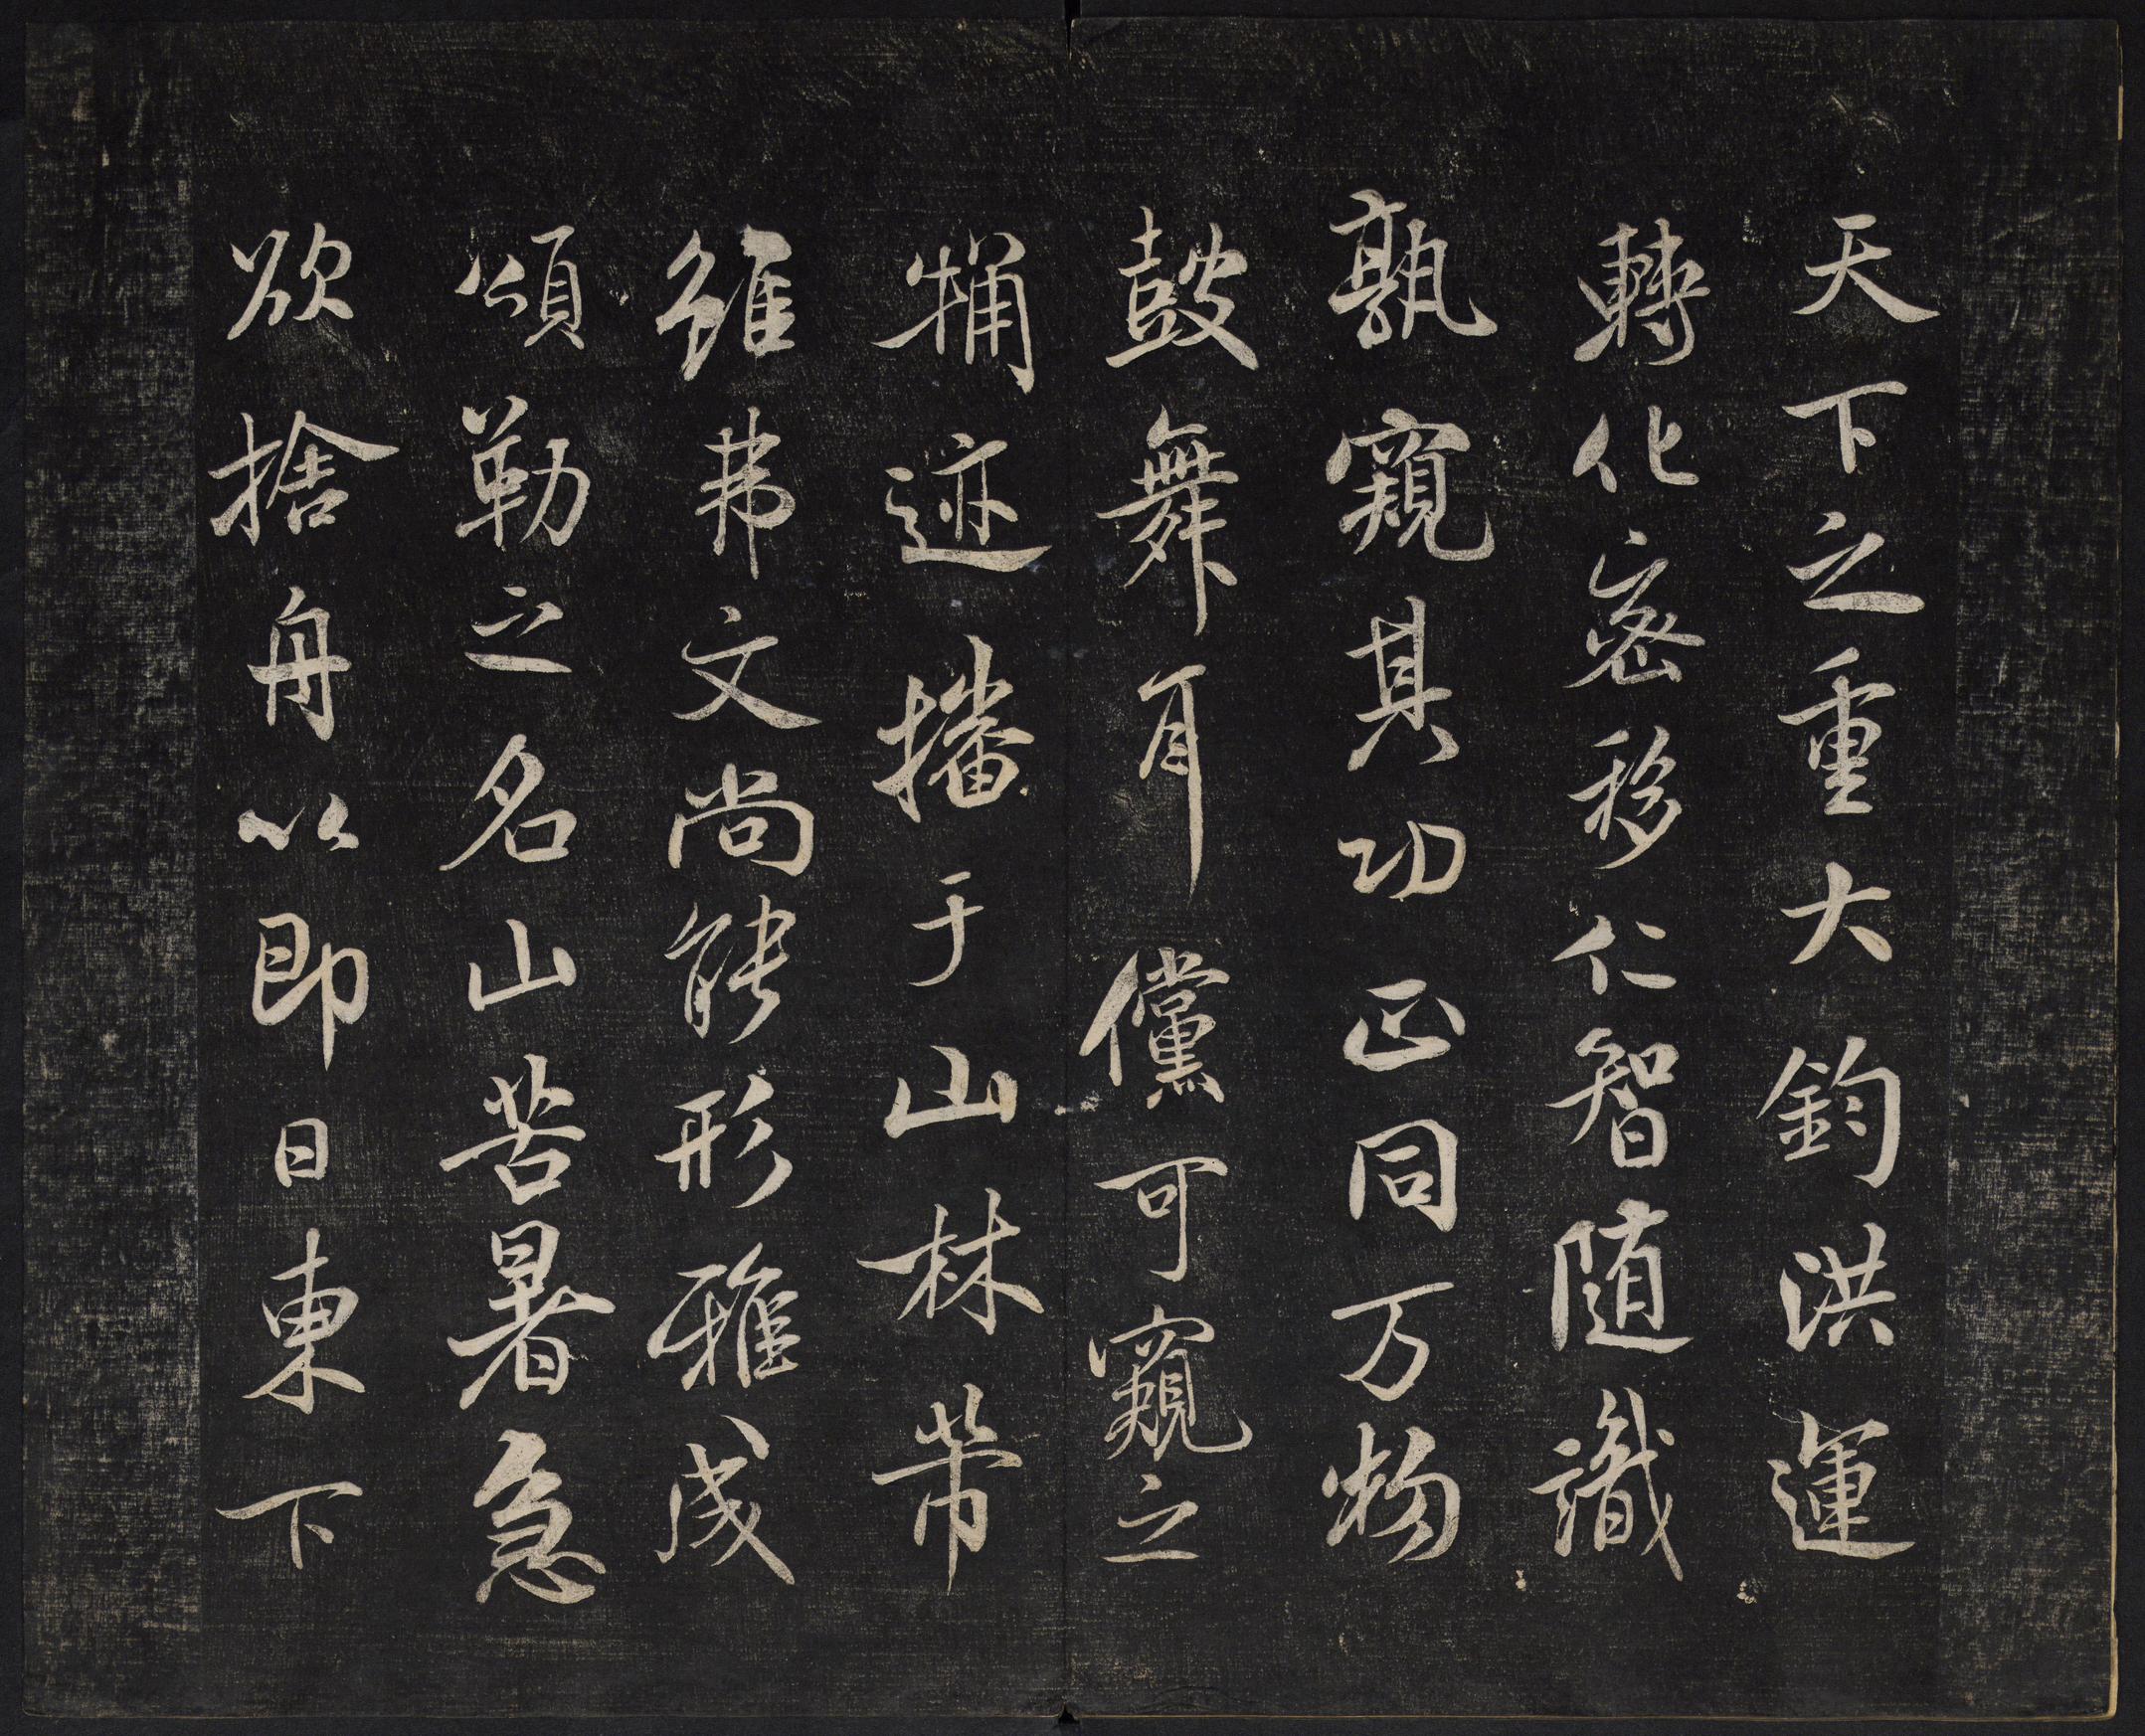 天下之重大鈞洪運
轉化密移仁智隨識
孰窺其功正同万物
鼓舞耳儻可窺之
迹播于山林常
雖弗文尚能形雅成
頌勒之名山苦暑急
欲捨舟以即日東下